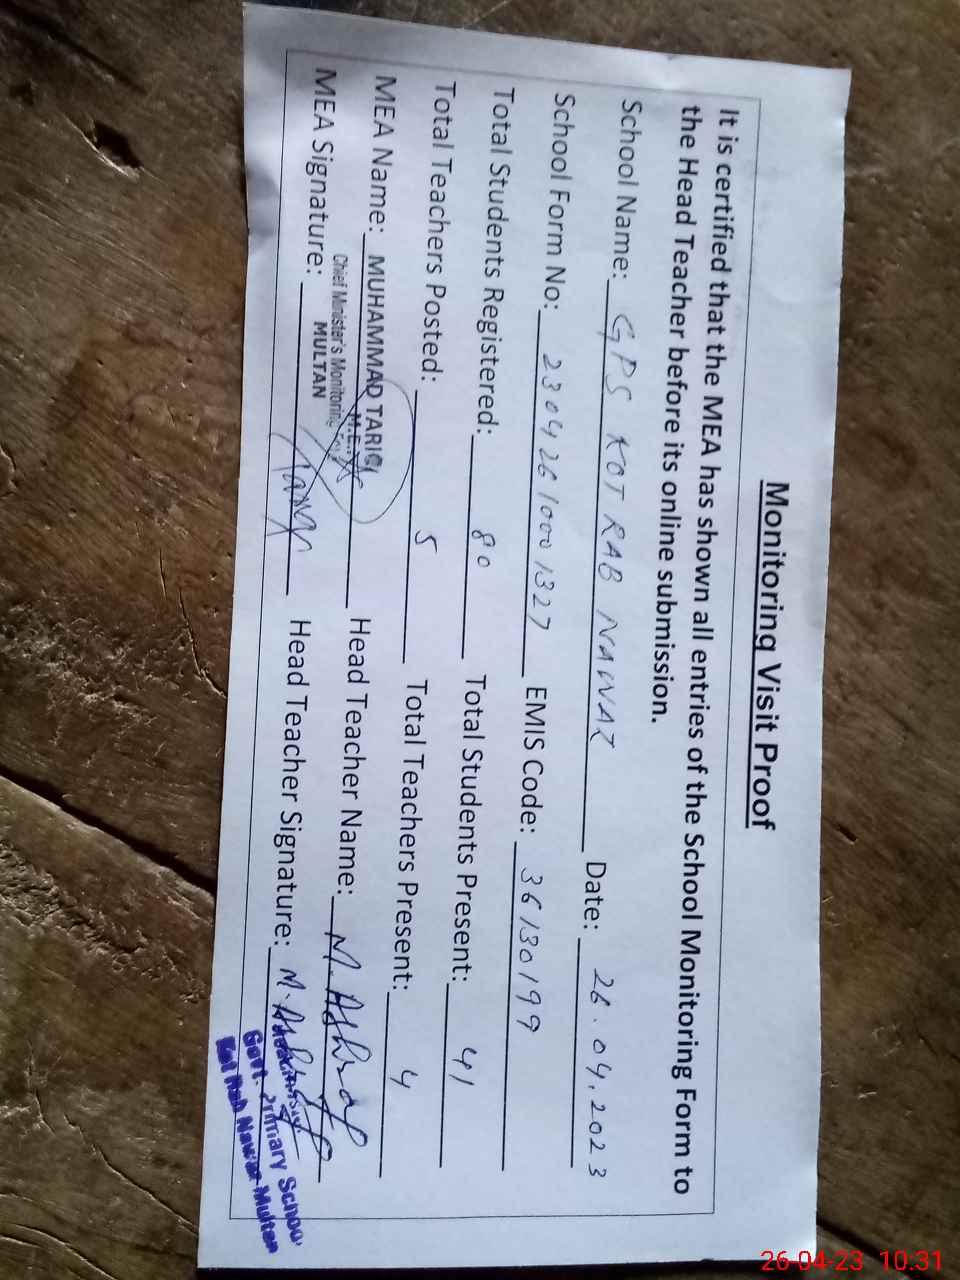 Monitoring Visit Proof
It is certified that the MEA has shown all entries of the School Monitoring Form to
the Head Teacher before its online submission.
School Name: GPS KOT RAB NAWAZ Date: 26.04.2023
School Form No: 23042610001327 EMIS Code: 36130199
Total Students Registered: 80 Total Students Present: 41
Total Teachers Posted: 5 Total Teachers Present: 4
MEA Name: MUHAMMAD TARIQ Head Teacher Name: M. Ashraf
M.E.A
Chief Minister's Monitoring
MULTAN
MEA Signature: Head Teacher Signature: M. Ashraf
Govt. Primary School
Kot Rab Nawaz Multan
26-04-23 10:31